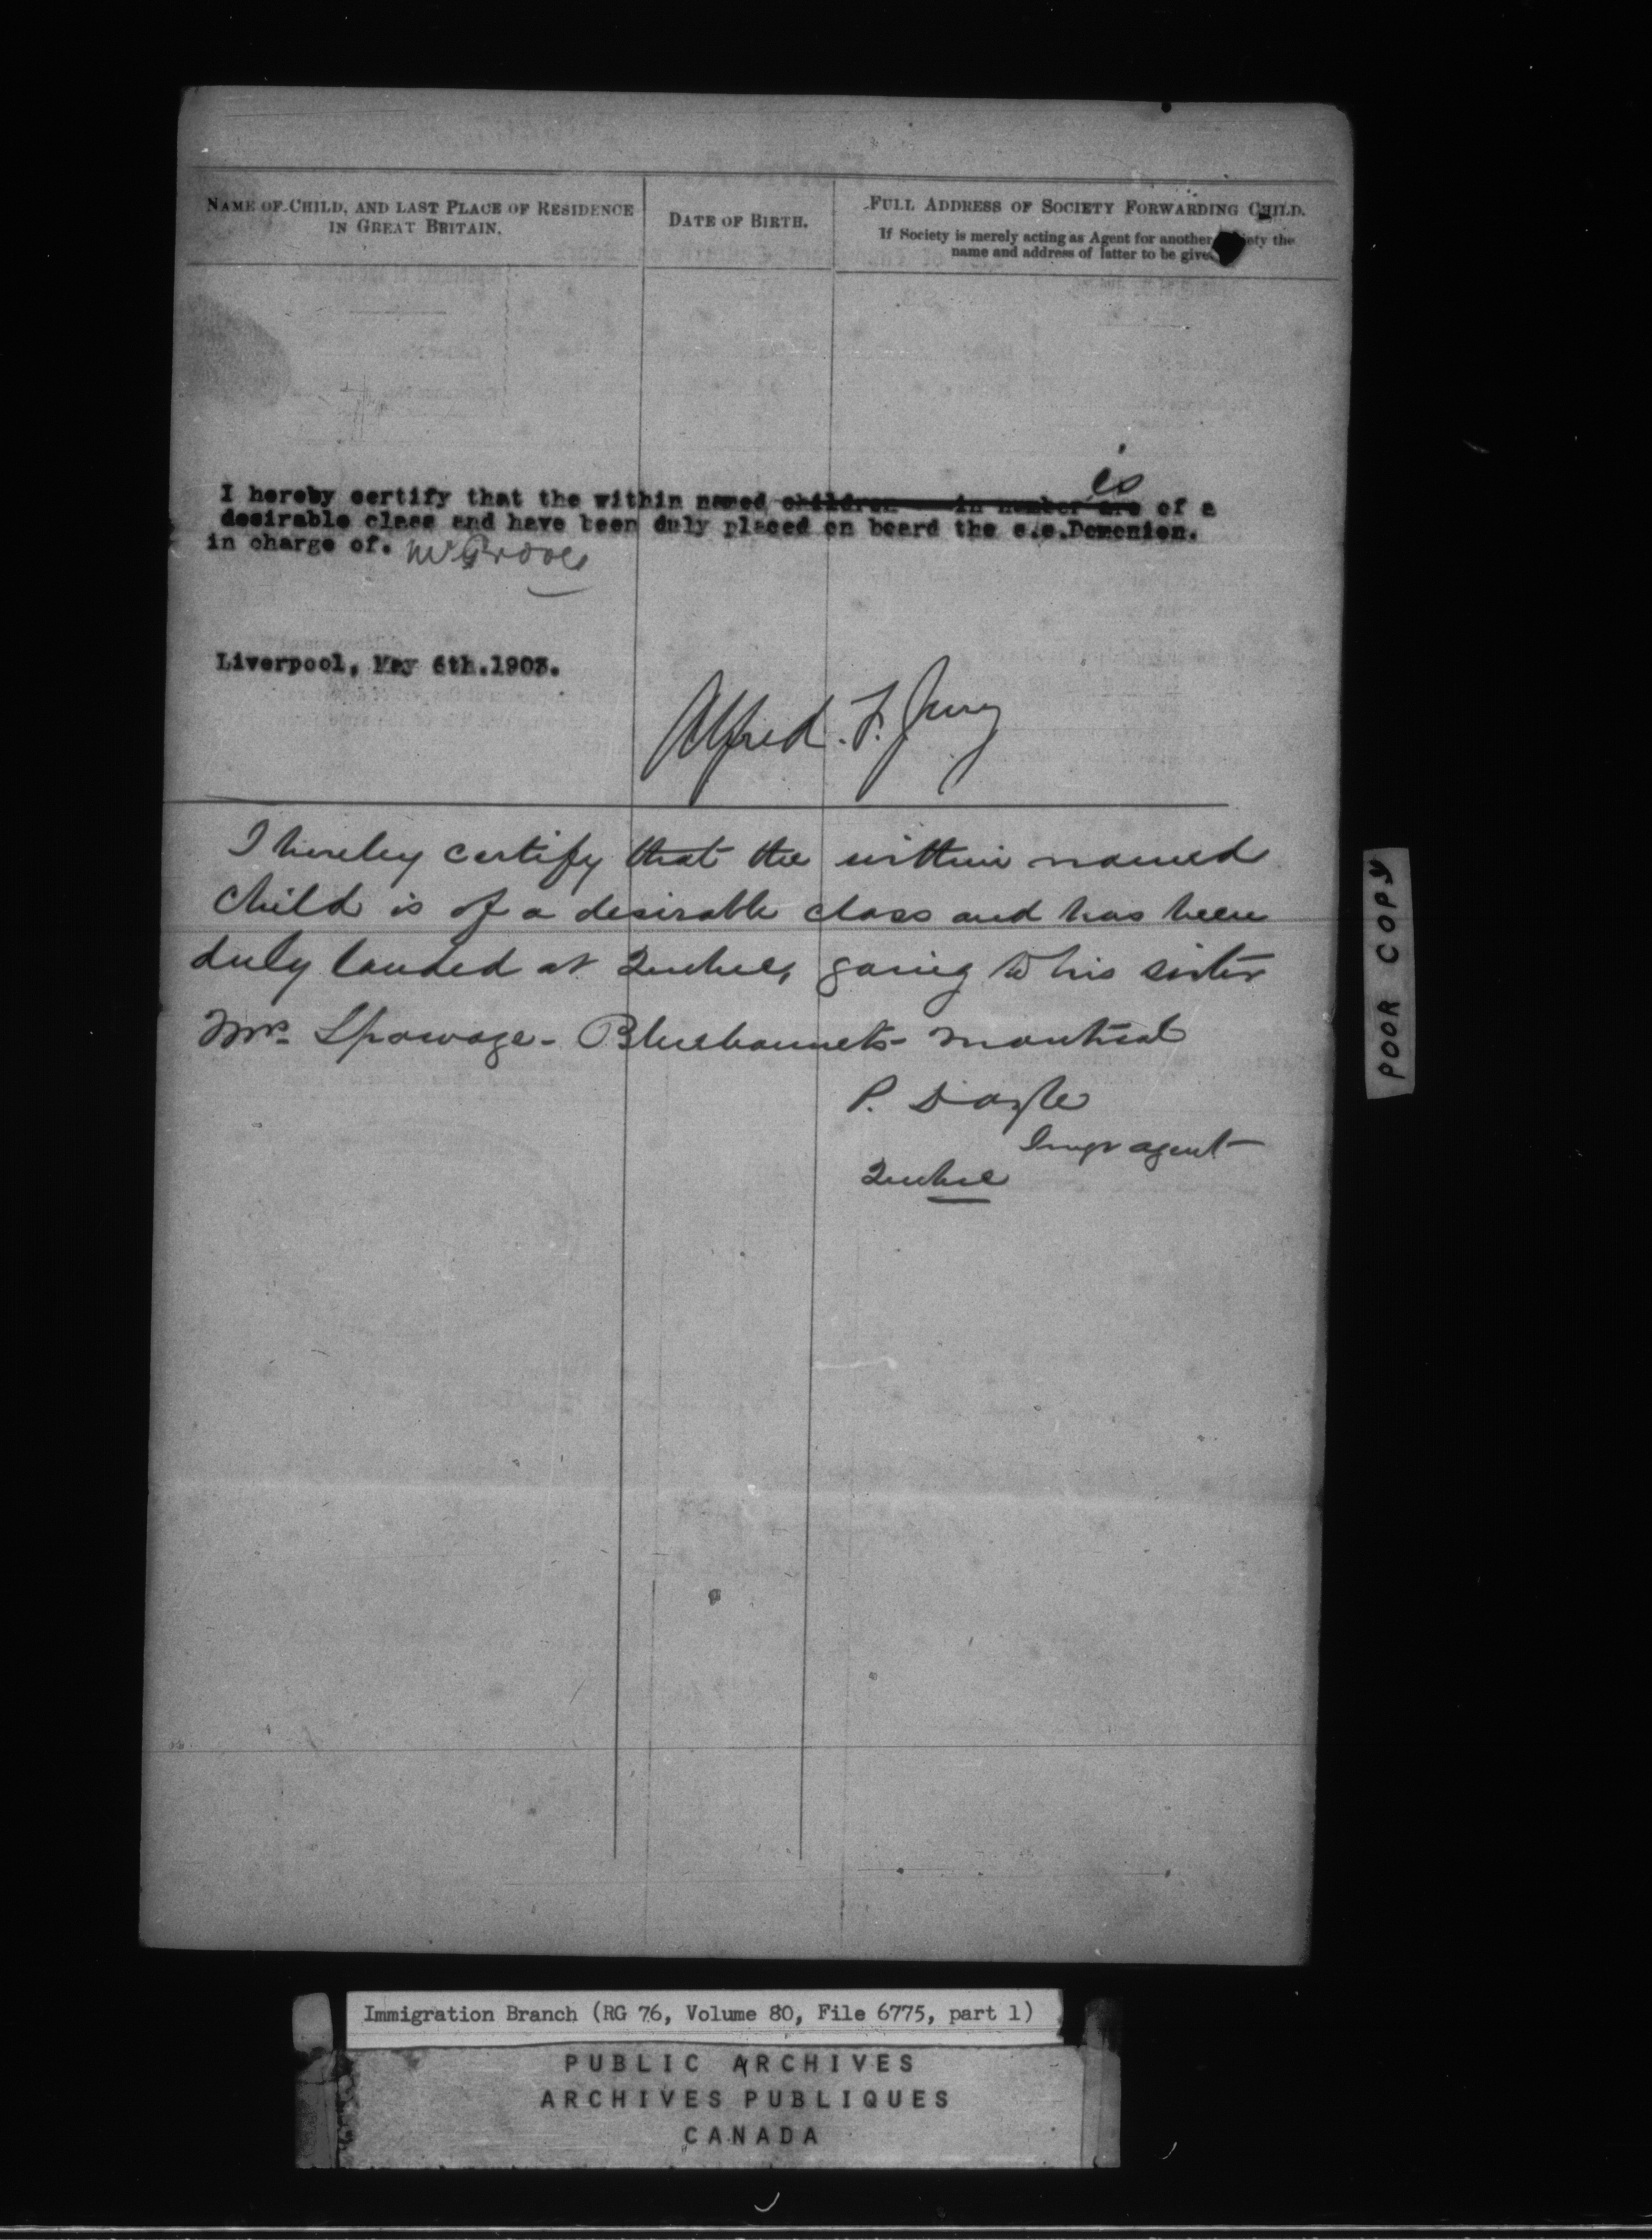 NAME OF CHILD, AND LAST PLACE OF RESIDENCE
IN GREAT BRITAIN.
DATE OF BIRTH.
FULL ADDRESS OF SOCIETY FORWARDING CHILD.
If Society is merely acting as Agent for another ety the
name and address of latter to be give
is
I hereby certify that the within named children in number are of a
desirable class and have been duly placed on board the s.s.Domonion.
in charge of. Mr Groves
Liverpool, May 6th.1903.
Alfred. F. Jury
I hereby certify that the within named
child is of a desirable class and has been
duly landed at Quebec, going to his sister
Mrs. Spowage - Bluebonnets - Montreal
P. Doyle
Imgr agent
Quebec
POOR COPY
Immigration Branch (RG 76, Volume 80, File 6775, part 1)
PUBLIC ARCHIVES
ARCHIVES PUBLIQUES
CANADA